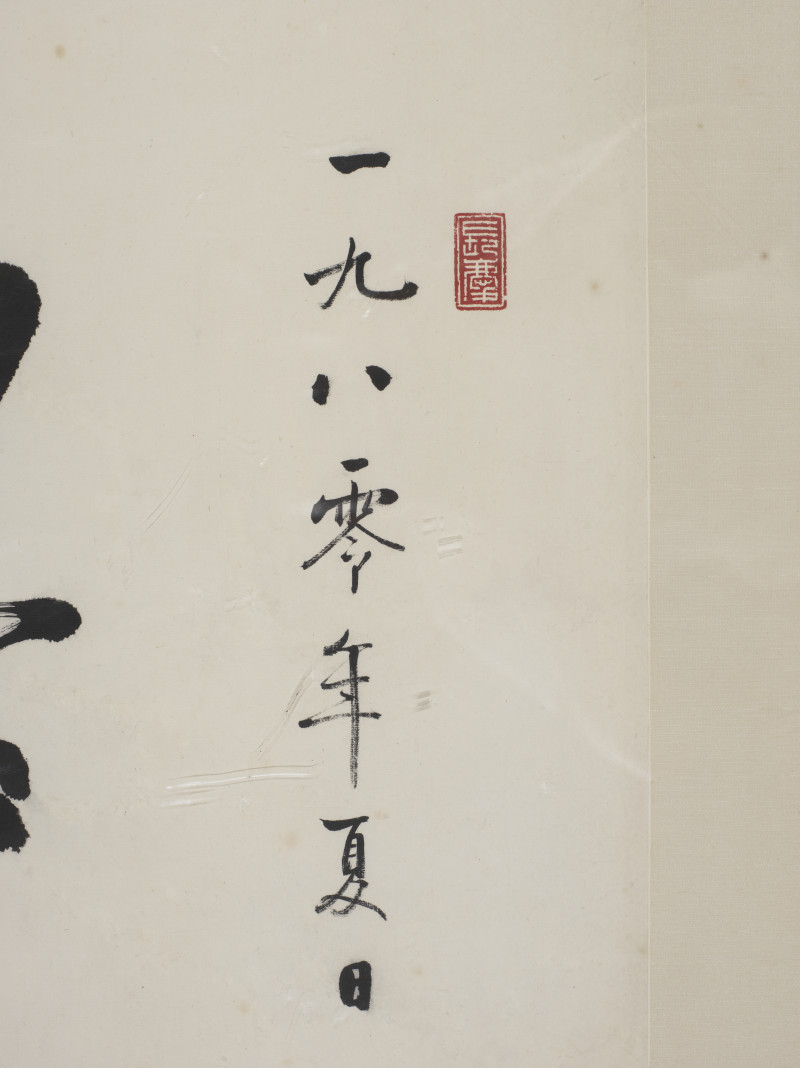 一九八零年夏日